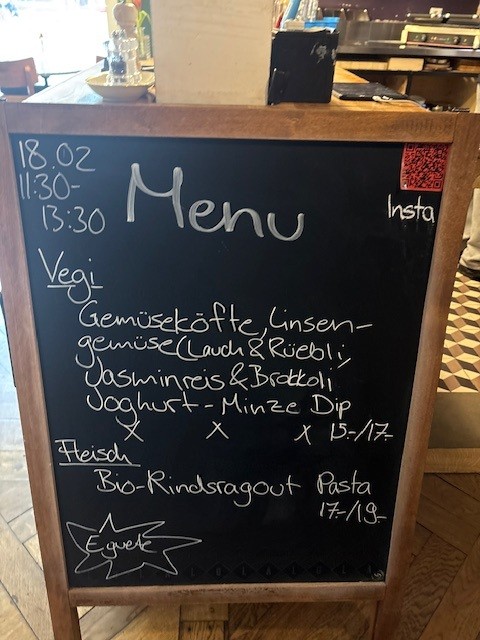 18.02
11:30-
13:30
Menu
Insta
Vegi
Gemüseköfte, Linsen-
gemüse (Lauch & Rüebli,
Jasminreis & Brokkoli
Joghurt-Minze Dip
X X X 15.-/17.-
Fleisch
Bio-Rindsragout Pasta
17.-/19.-
E guete